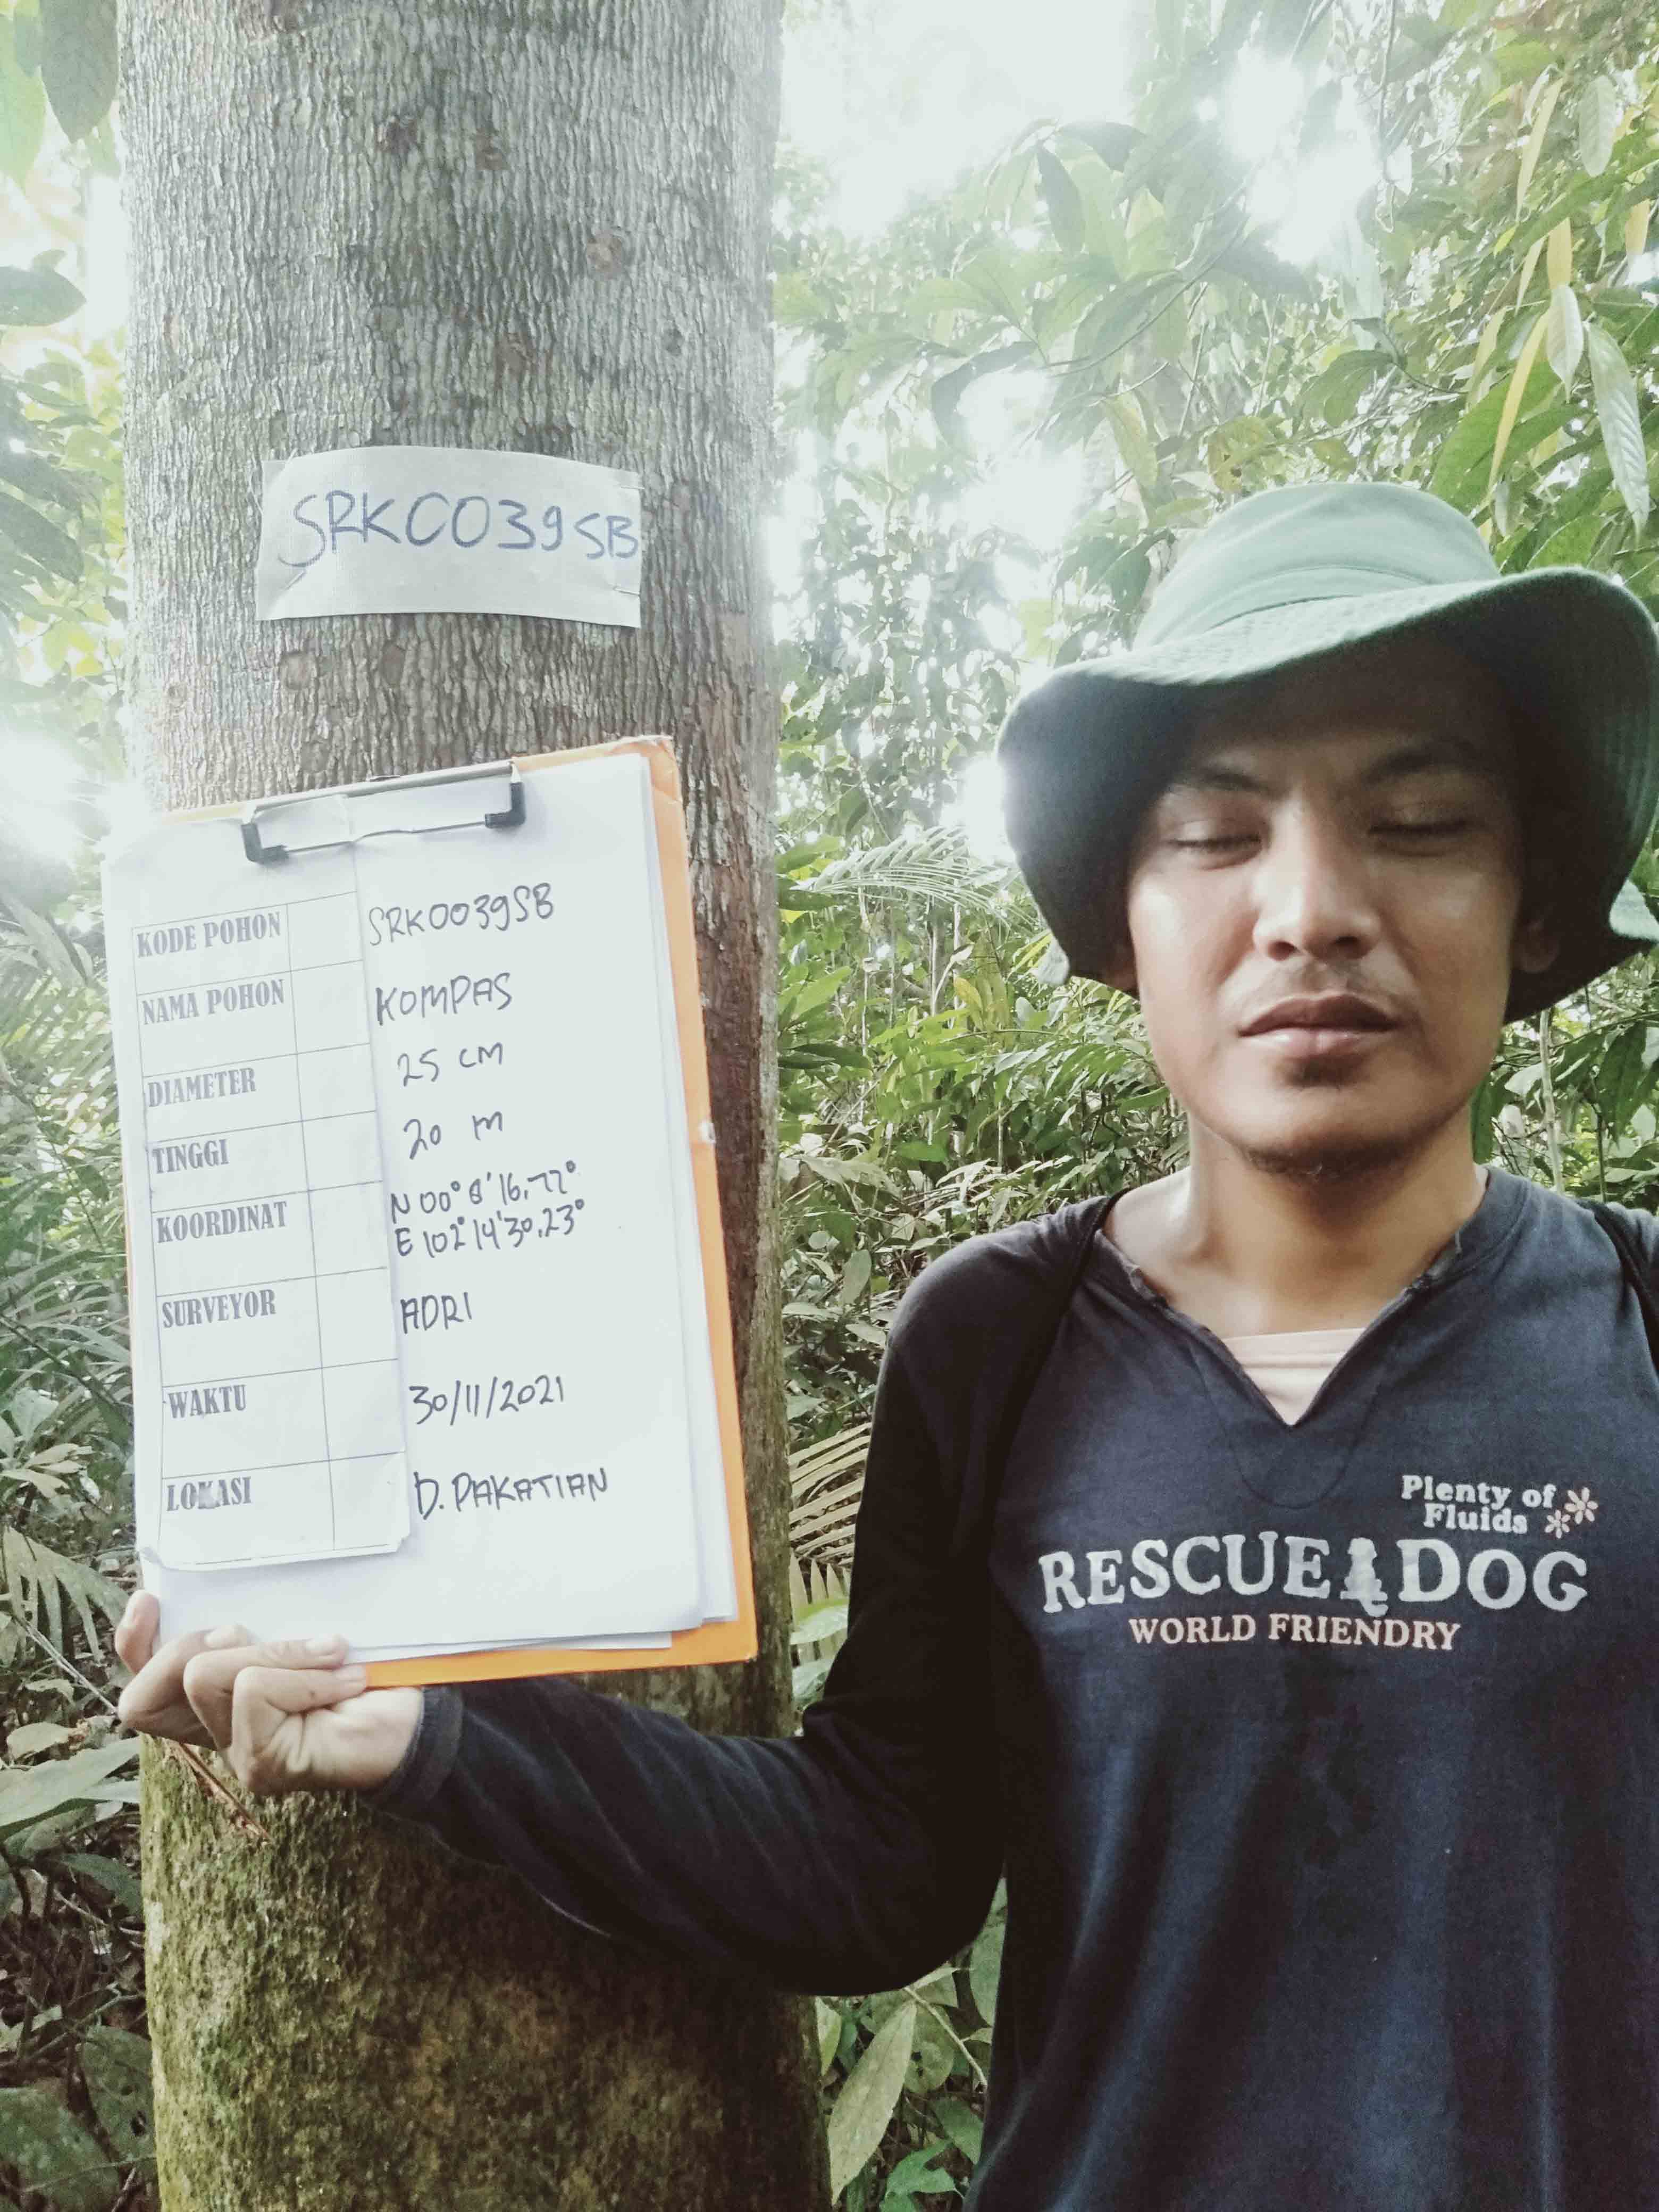 SRK0039SB
KODE POHON SRK0039SB
NAMA POHON KOMPAS
DIAMETER 25 CM
TINGGI 20 M
KOORDINAT N 00° 8' 16,77°
E 102° 14' 30,23°
SURVEYOR ADRI
WAKTU 30/11/2021
LOKASI D. PAKATIAN
Plenty of
Fluids
RESCUE DOG
WORLD FRIENDRY